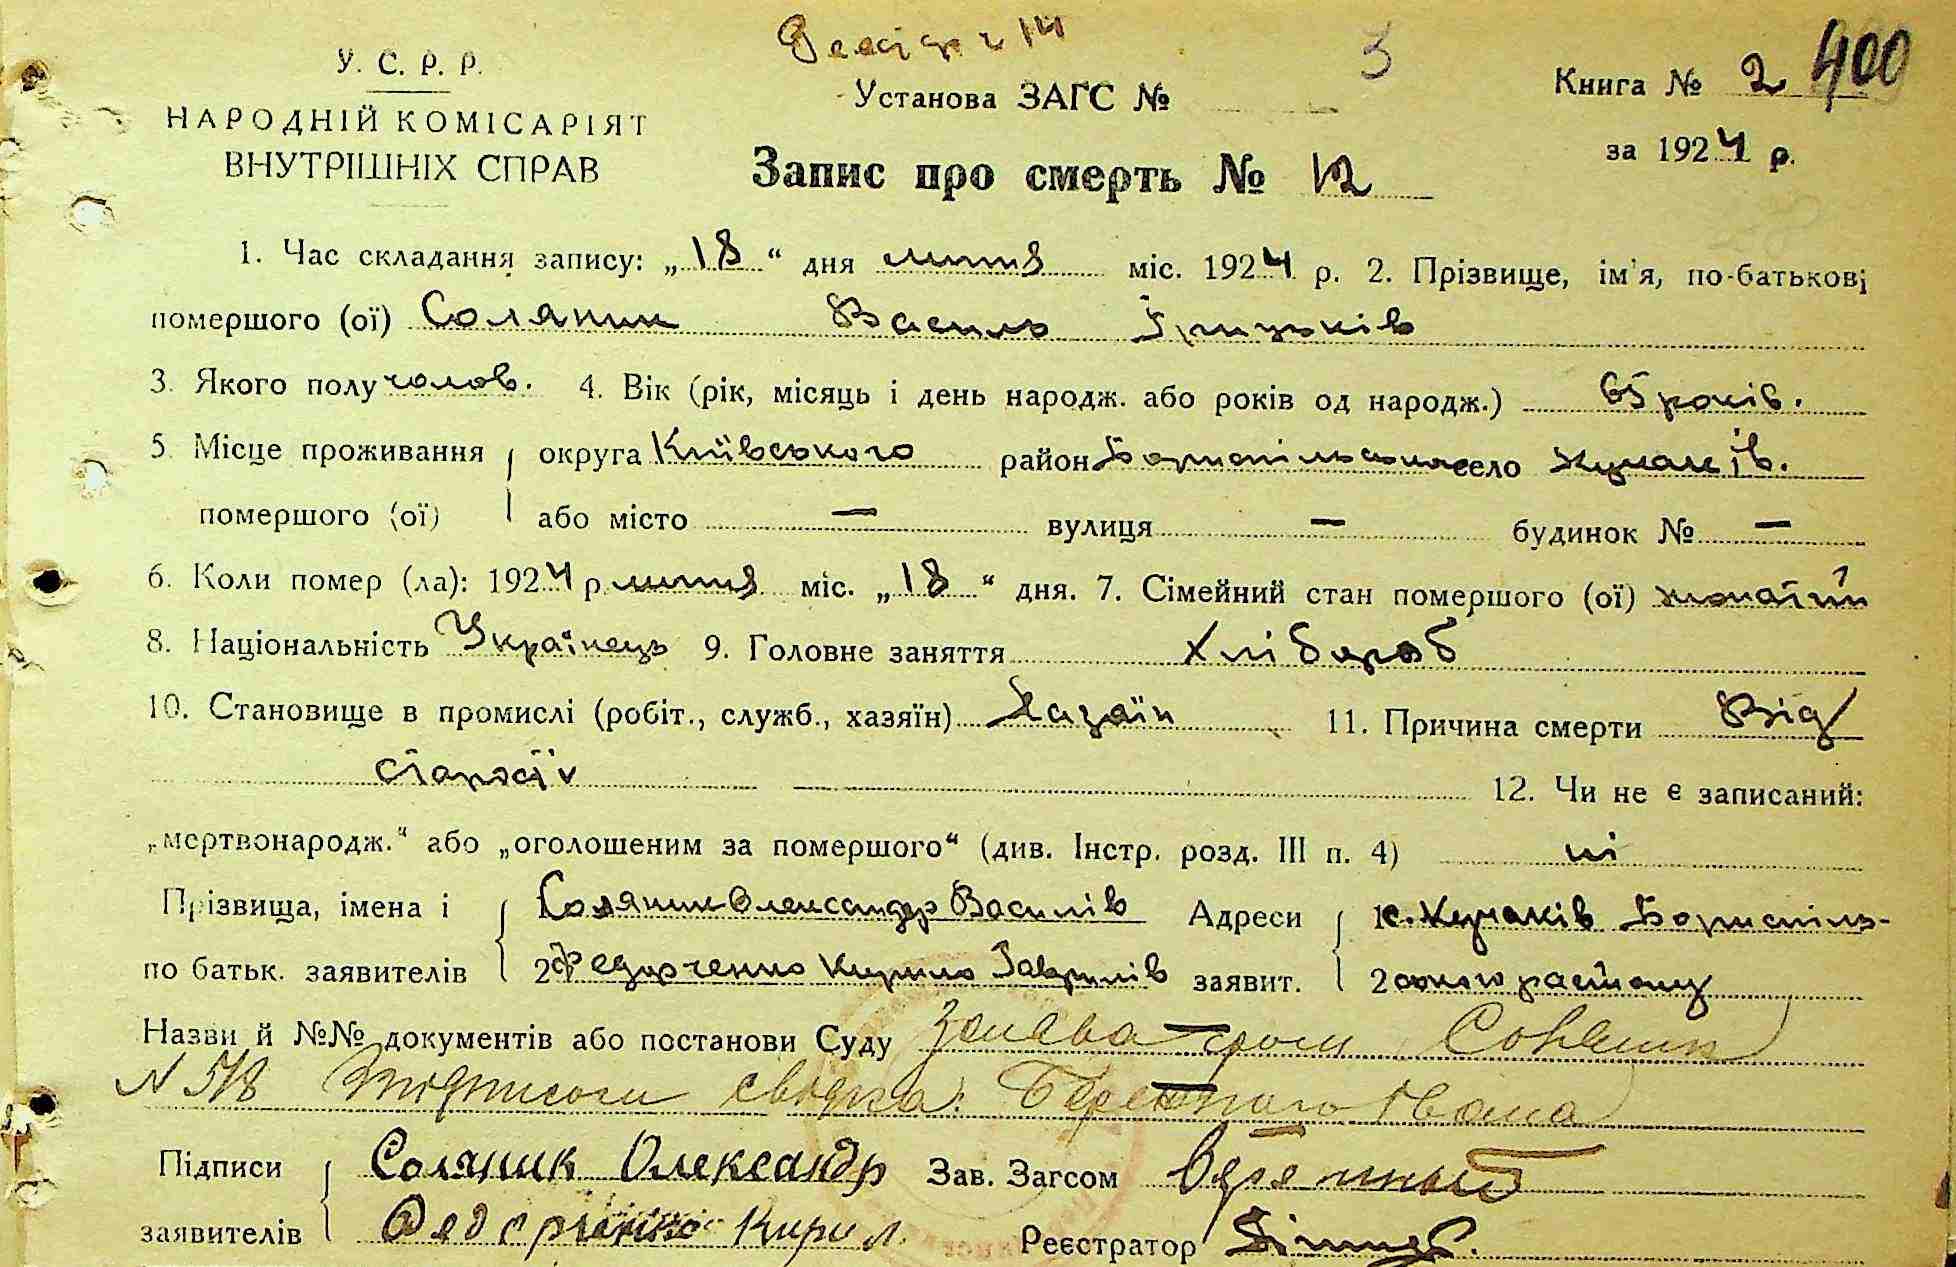 3
У. С. Р. Р.
Установа ЗАГС №
Книга № 2 400
НАРОДНІЙ КОМІСАРІЯТ
ВНУТРІШНІХ СПРАВ
за 1924 р.
Запис про смерть № 12
1. Час складання запису: „18“ дня липня міс. 1924 р. 2. Прізвище, ім'я, по-батькові
помершого (ої) Соляник Василь Грицьків
3. Якого полу чолов. 4. Вік (рік, місяць і день народж. або років од народж.) 65 років.
5. Місце проживання округа Київського район Бориспільського село Кучаків.
помершого (ої) або місто — вулиця — будинок № —
6. Коли помер (ла): 1924 р. липня міс. „18“ дня. 7. Сімейний стан помершого (ої) жонатий
8. Національність Українець 9. Головне заняття Хлібороб
10. Становище в промислі (робіт., служб., хазяїн) Хазяїн 11. Причина смерти Від
старости 12. Чи не є записаний:
„мертвонародж.“ або „оголошеним за помершого“ (див. Інстр. розд. III п. 4) ні
Прізвища, імена і 1 Соляник Олександр Василів Адреси 1 с. Кучаків Бориспіль-
по батьк. заявителів 2 Федорченко Кирило Гаврилів заявит. 2 ського району
Назви й №№ документів або постанови Суду Заява гром Соляник
N 518 свідка: Івана
Підписи Соляник Олександр Зав. Загсом
заявителів Федорченко Кирил Реєстратор